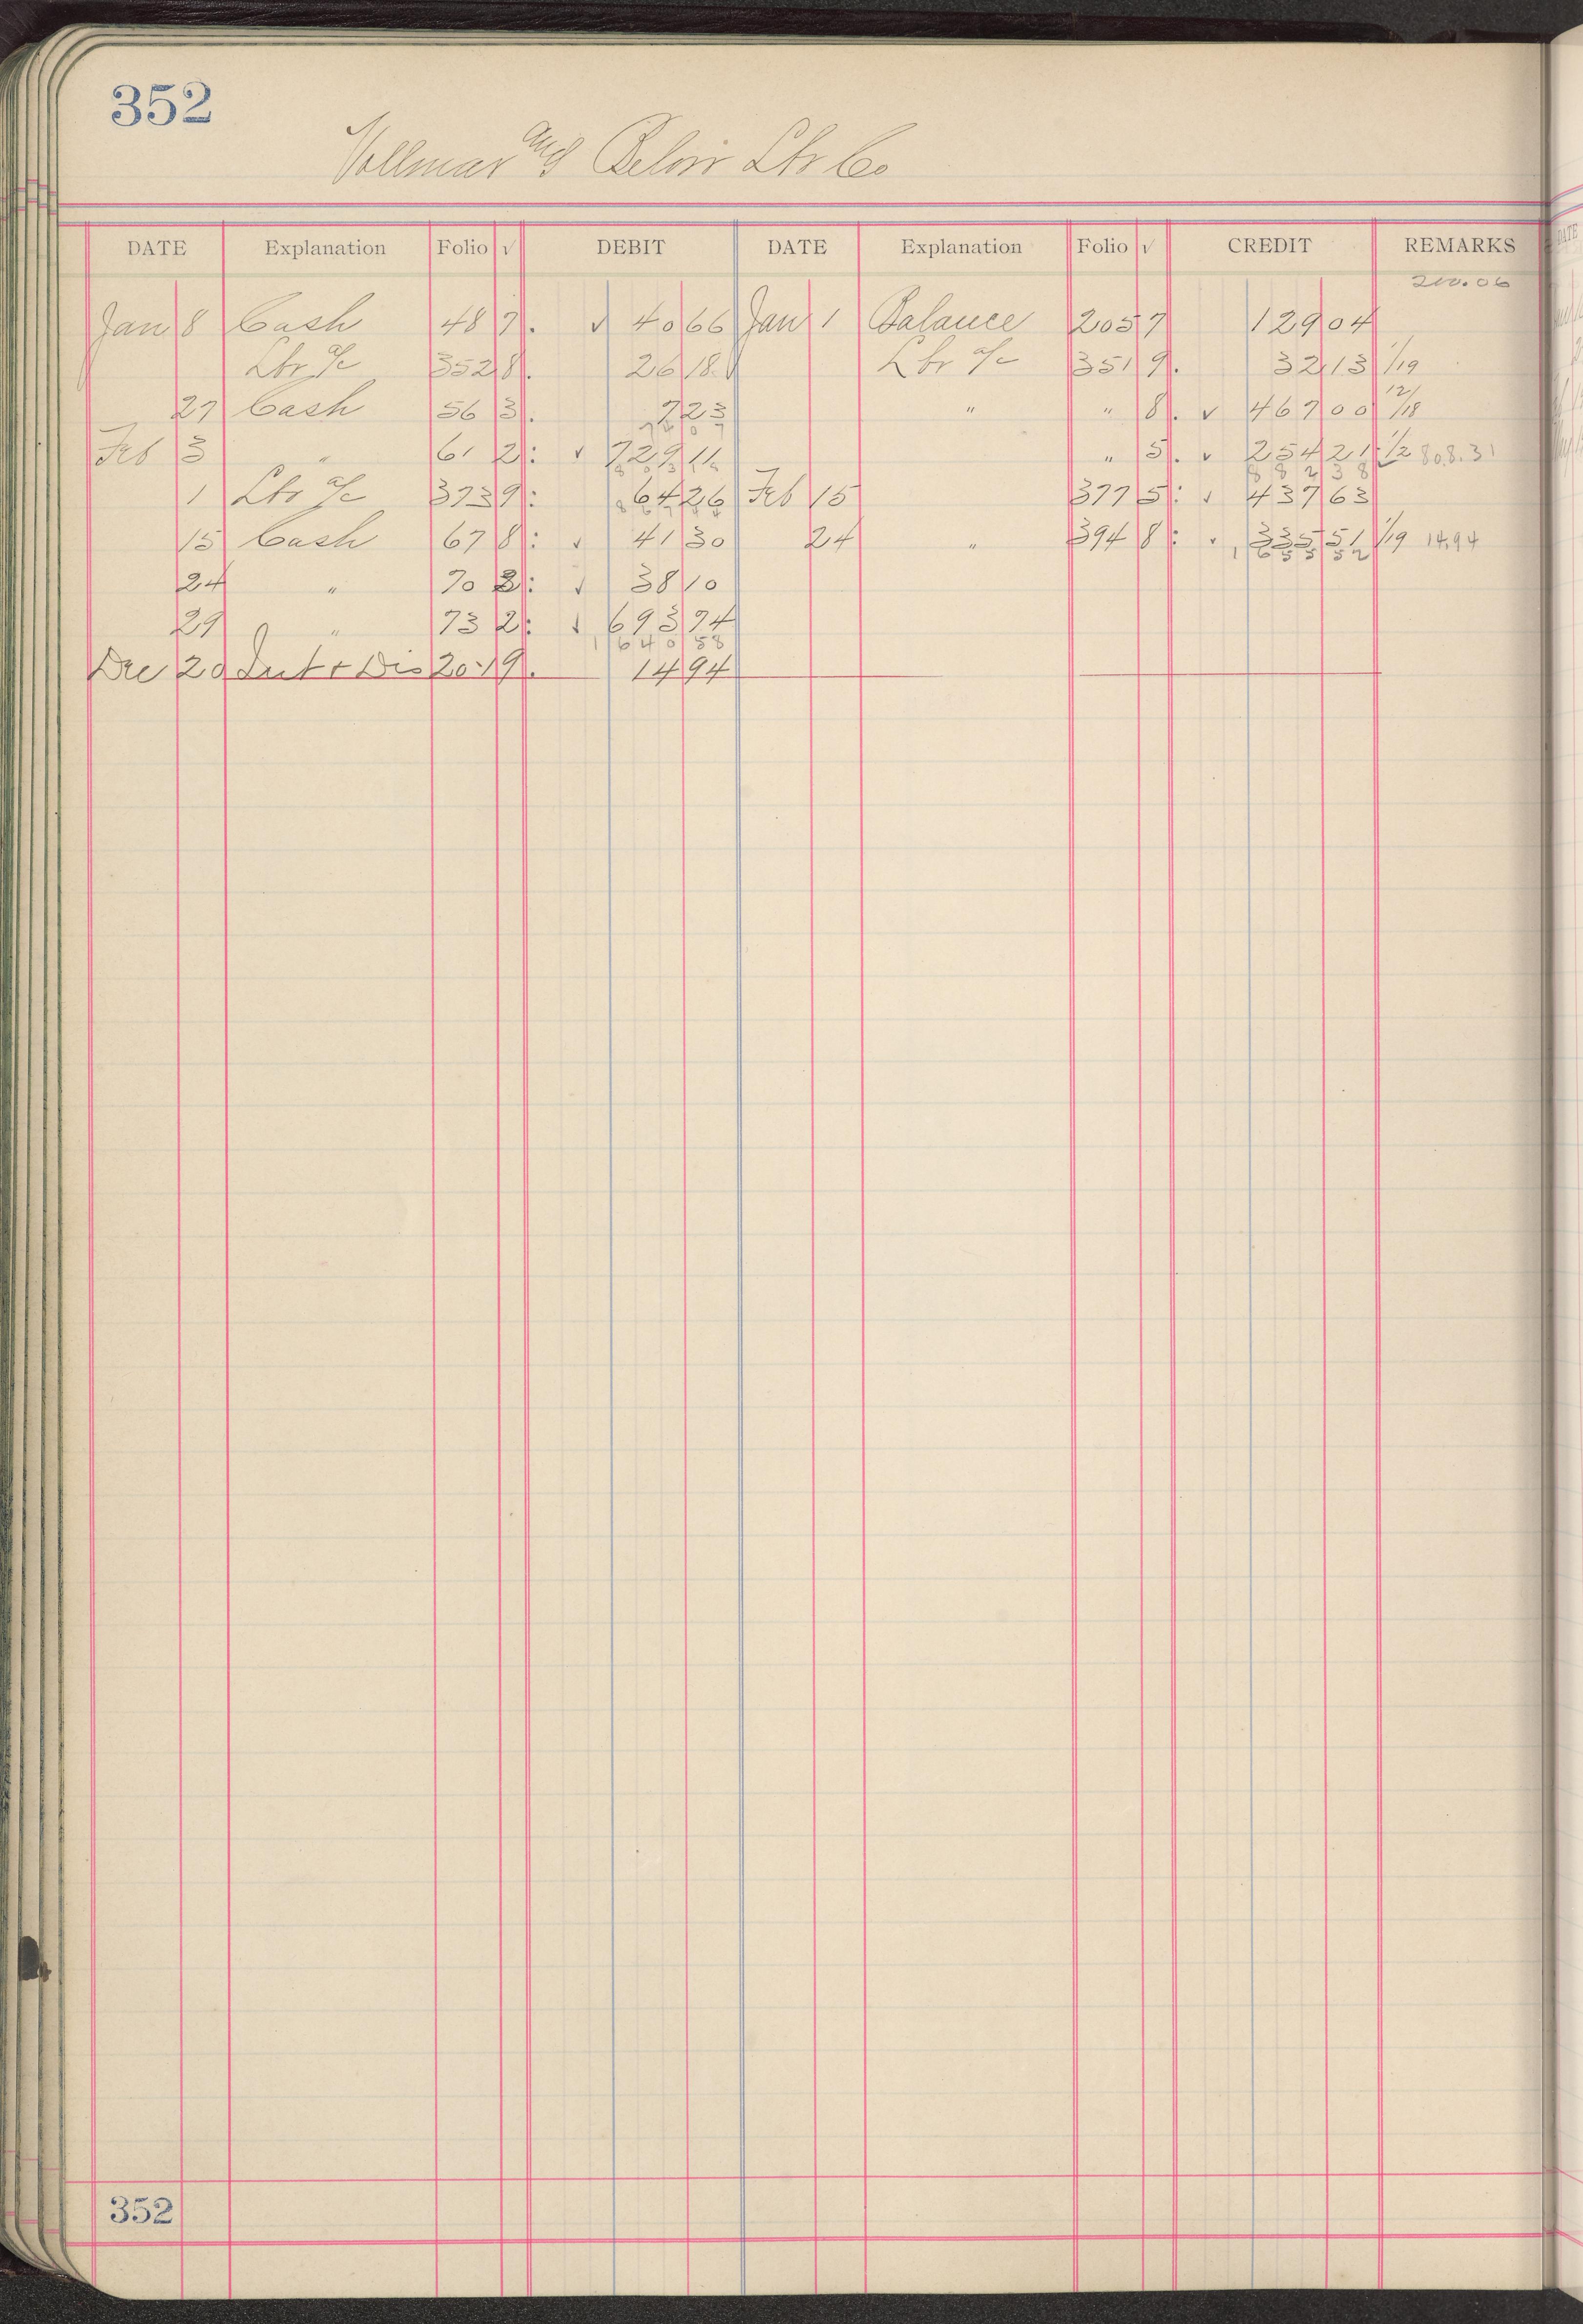 352
Vollmar and Below Lbr Co
DATE Explanation Folio √ DEBIT DATE Explanation Folio √ CREDIT REMARKS
210.06
Jan 8 Cash 48 7. √ 40 66 Jan 1 Balance 205 7 129 04
Lbr a/c 352 8. 26 18 √ Lbr a/c 351 9. 32 13 1/19
27 Cash 56 3. 7 23 " " 8. √ 467 00 12/18
74 07
Feb 3 " 61 2: √ 729 11 " 5. √ 254 21 1/2 808.31
803 18 882 38
1 Lbr a/c 373 9: 64 26 Feb 15 377 5: √ 437 63
867 44
15 Cash 67 8: √ 41 30 24 " 394 8: √ 335 51 1/19 14.94
1655 52
24 " 70 3: √ 38 10
29 " 73 2: √ 693 74
1640 58
Dec 20 Int + Dis 20 19. 14 94
352